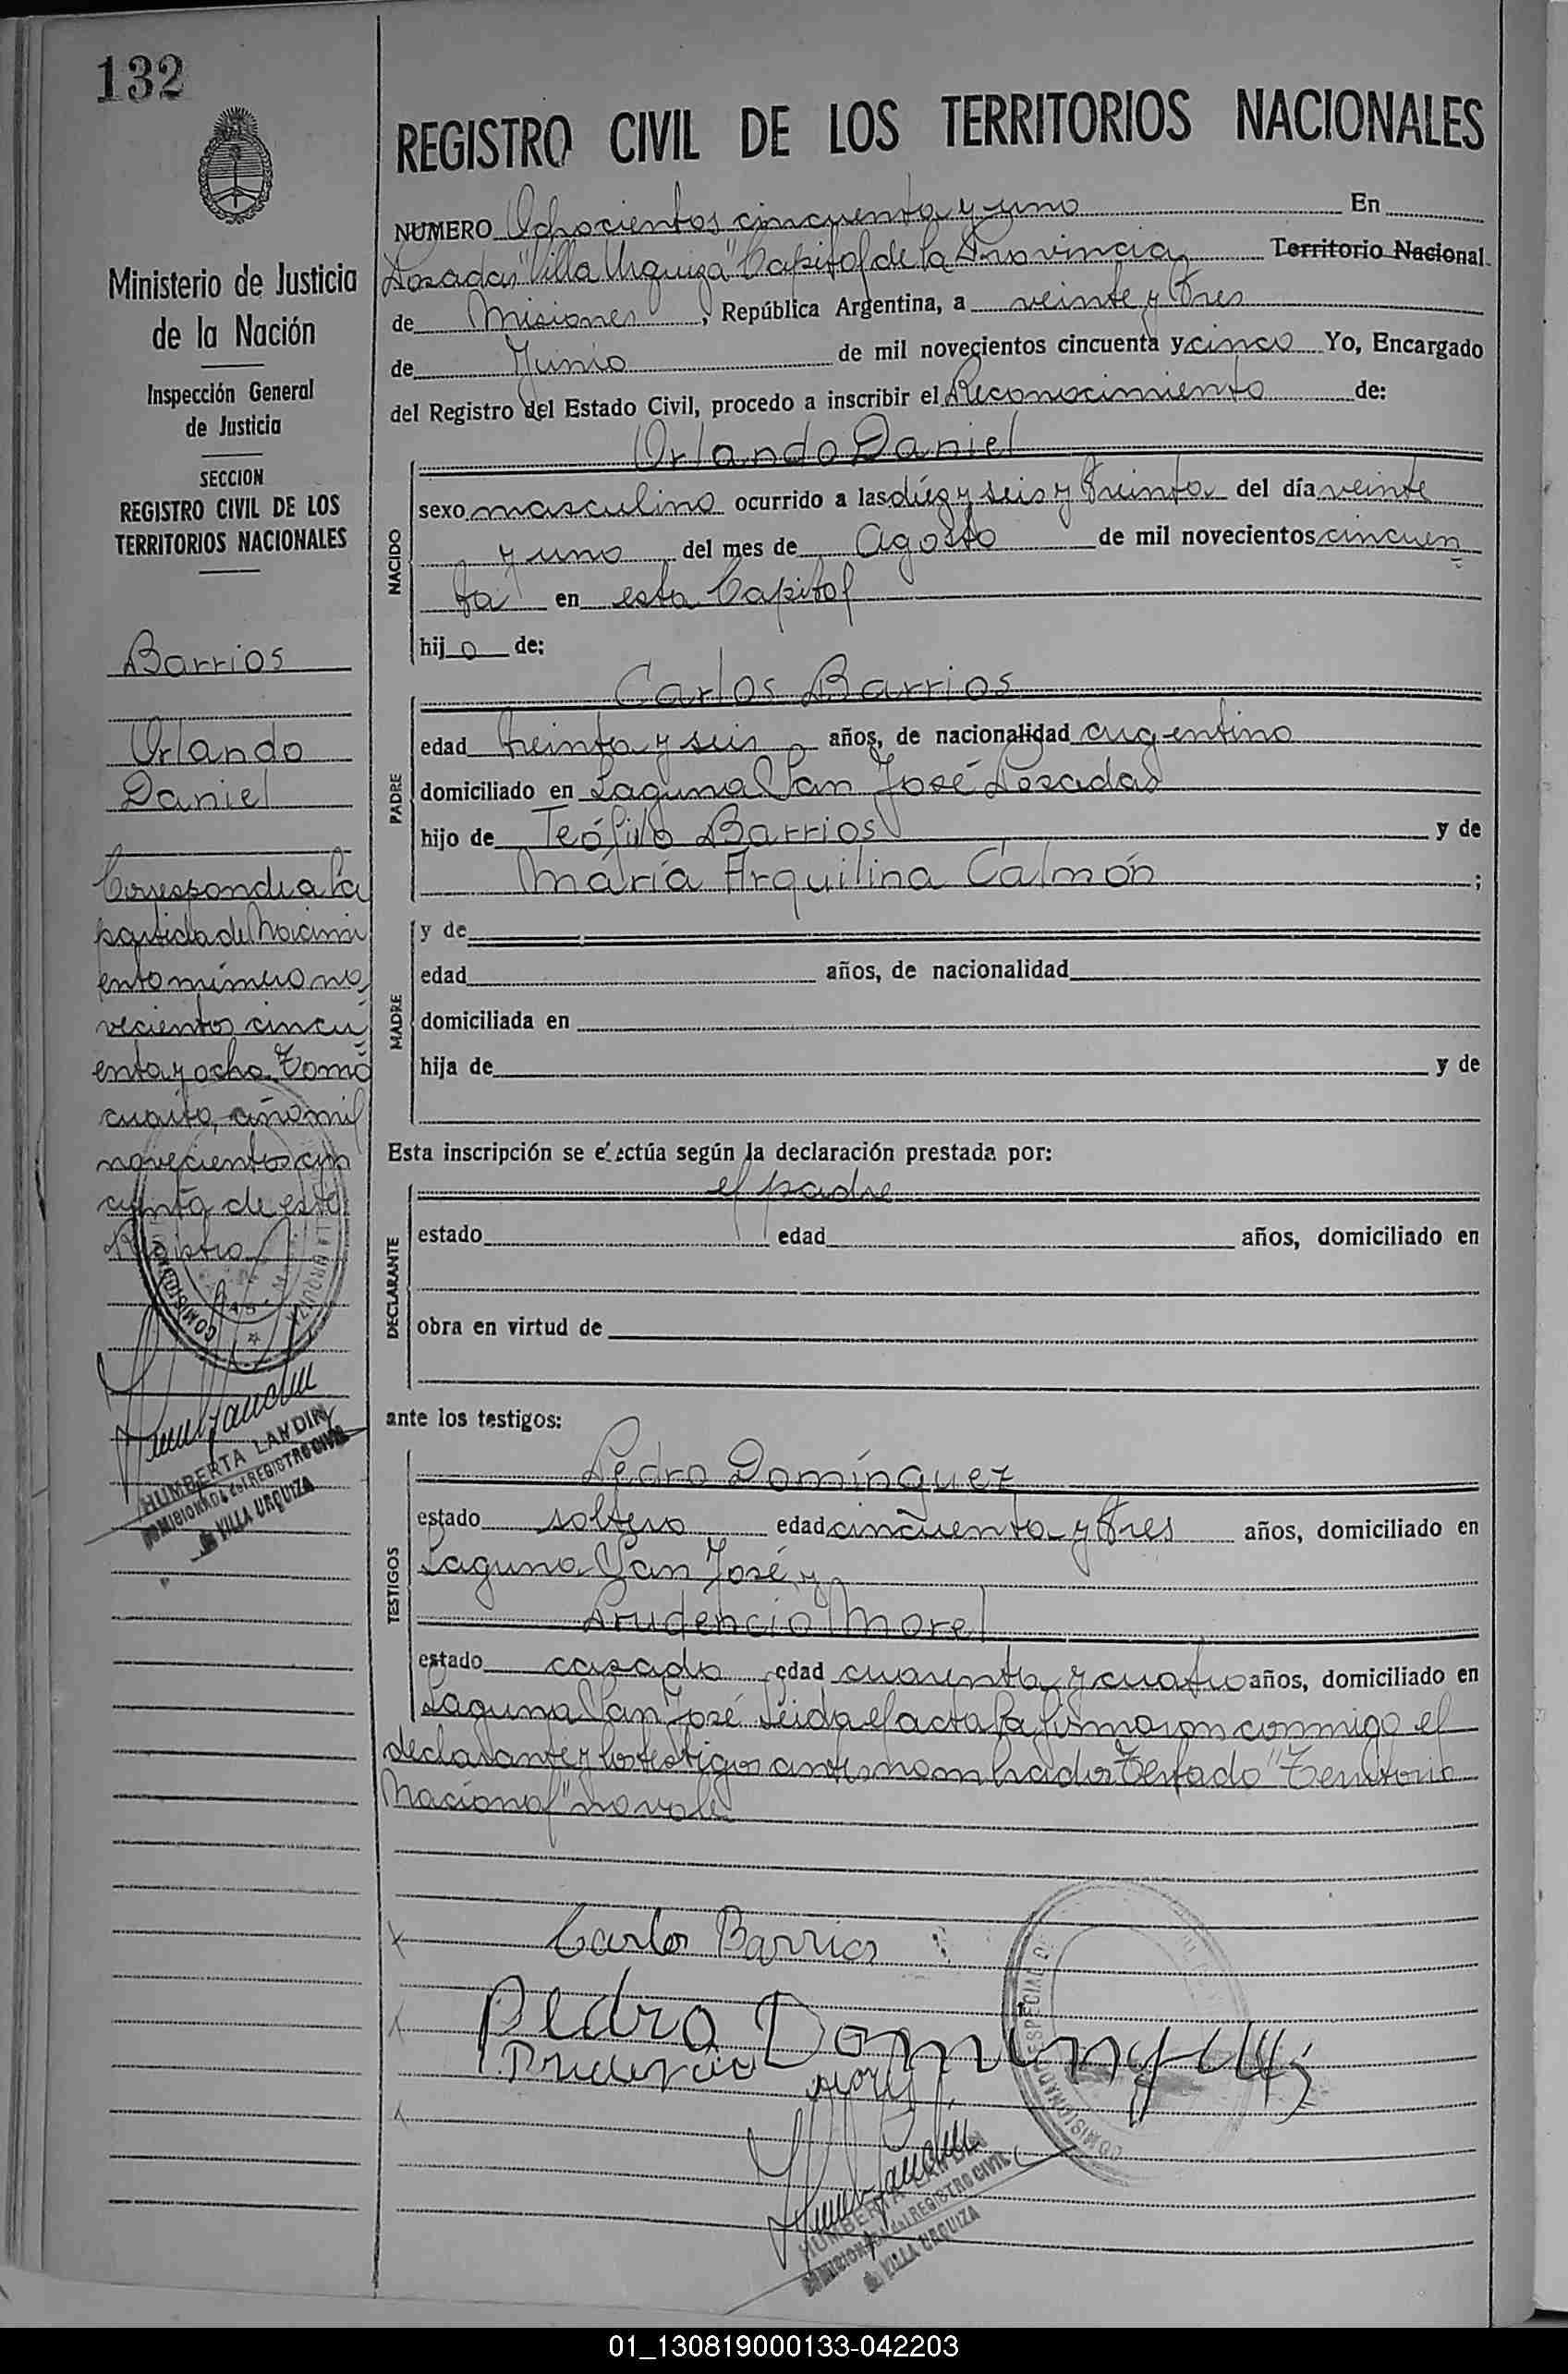 132
Ministerio de Justicia
de la Nación
Inspección General
de Justicia
SECCION
REGISTRO CIVIL DE LOS
TERRITORIOS NACIONALES
Barrios
Orlando
Daniel
Corresponde a la
partida de Nacimi
ento número no
vecientos cincu
enta y ocho. Tomo
cuarto, año mil
novecientos cin
cuenta de este
Registro
HUMBERTA LANDIN
COMISIONADA del REGISTRO CIVIL
VILLA URQUIZA
REGISTRO CIVIL DE LOS TERRITORIOS NACIONALES
NUMERO Ochocientos cincuenta y uno En
Posadas "Villa Urquiza" Capital de la Provincia Territorio Nacional
de Misiones, República Argentina, a veinte y tres
de Junio de mil novecientos cincuenta y cinco Yo, Encargado
del Registro del Estado Civil, procedo a inscribir el Reconocimiento de:
Orlando Daniel
NACIDO
sexo masculino ocurrido a las diez y seis y treinta del día veinte
y uno del mes de Agosto de mil novecientos cincuen
ta en esta Capital
hijo de:
Carlos Barrios
PADRE
edad treinta y seis años, de nacionalidad argentino
domiciliado en Laguna San José Posadas
hijo de Teófilo Barrios y de
María Arquilina Calmón ;
MADRE
y de
edad años, de nacionalidad
domiciliada en
hija de y de
Esta inscripción se efectúa según la declaración prestada por:
el padre
DECLARANTE
estado edad años, domiciliado en
obra en virtud de
ante los testigos:
Pedro Domínguez
TESTIGOS
estado soltero edad cincuenta y tres años, domiciliado en
Laguna San José y
Prudencio Morel
estado casado edad cuarenta y cuatro años, domiciliado en
Laguna San José. Leida el acta la firmaron conmigo el
declarante y los testigos antes nombrados. Testado "Territorio
Nacional" no vale
Carlos Barrios
Pedro Dominguez
COMISIONADO ESPECIAL
HUMBERTA LANDIN
COMISIONADA del REGISTRO CIVIL
VILLA URQUIZA
01_130819000133-042203